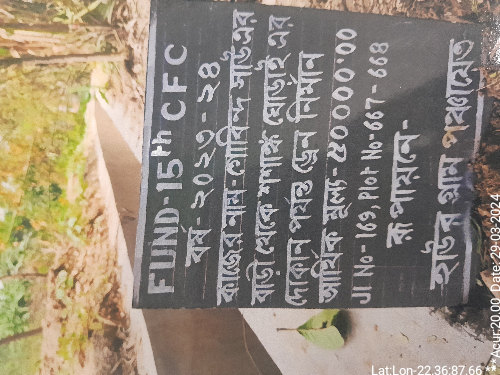 FUND-15th CFC
বর্ষ-২০২৩-২৪
কাজের নাম-গোবিন্দ সাউ এর
বাড়ী থেকে শশাঙ্ক ঘোড়াই এর
দোকান পর্যন্ত ড্রেন নির্মান
আর্থিক মূল্য-৫০০০০'০০
Jl No-169, Plot No-667-668
রূপায়নে-
হাউর গ্রাম পঞ্চায়েত
Lat:Lon-22.36:87.66
***Asur:20.00*Date: 29:03:2024